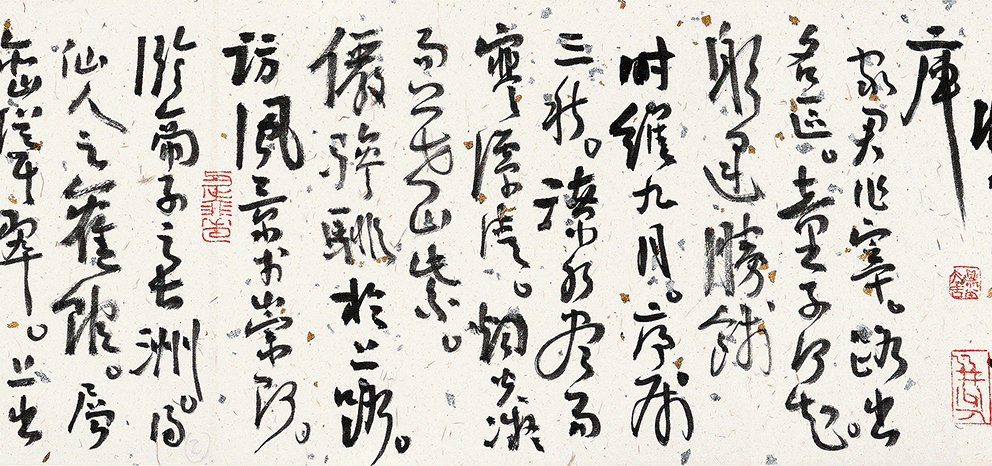 庫
家君作宰。路出
名區。童子何知。
躬逢勝餞
时維九月。序属
三秋。潦水尽而
寒潭清。烟光凝
而暮山紫。
儼驂騑於上路。
訪風景於崇阿。
臨帝子之長洲。得
仙人之舊館。層
巒聳翠。上出